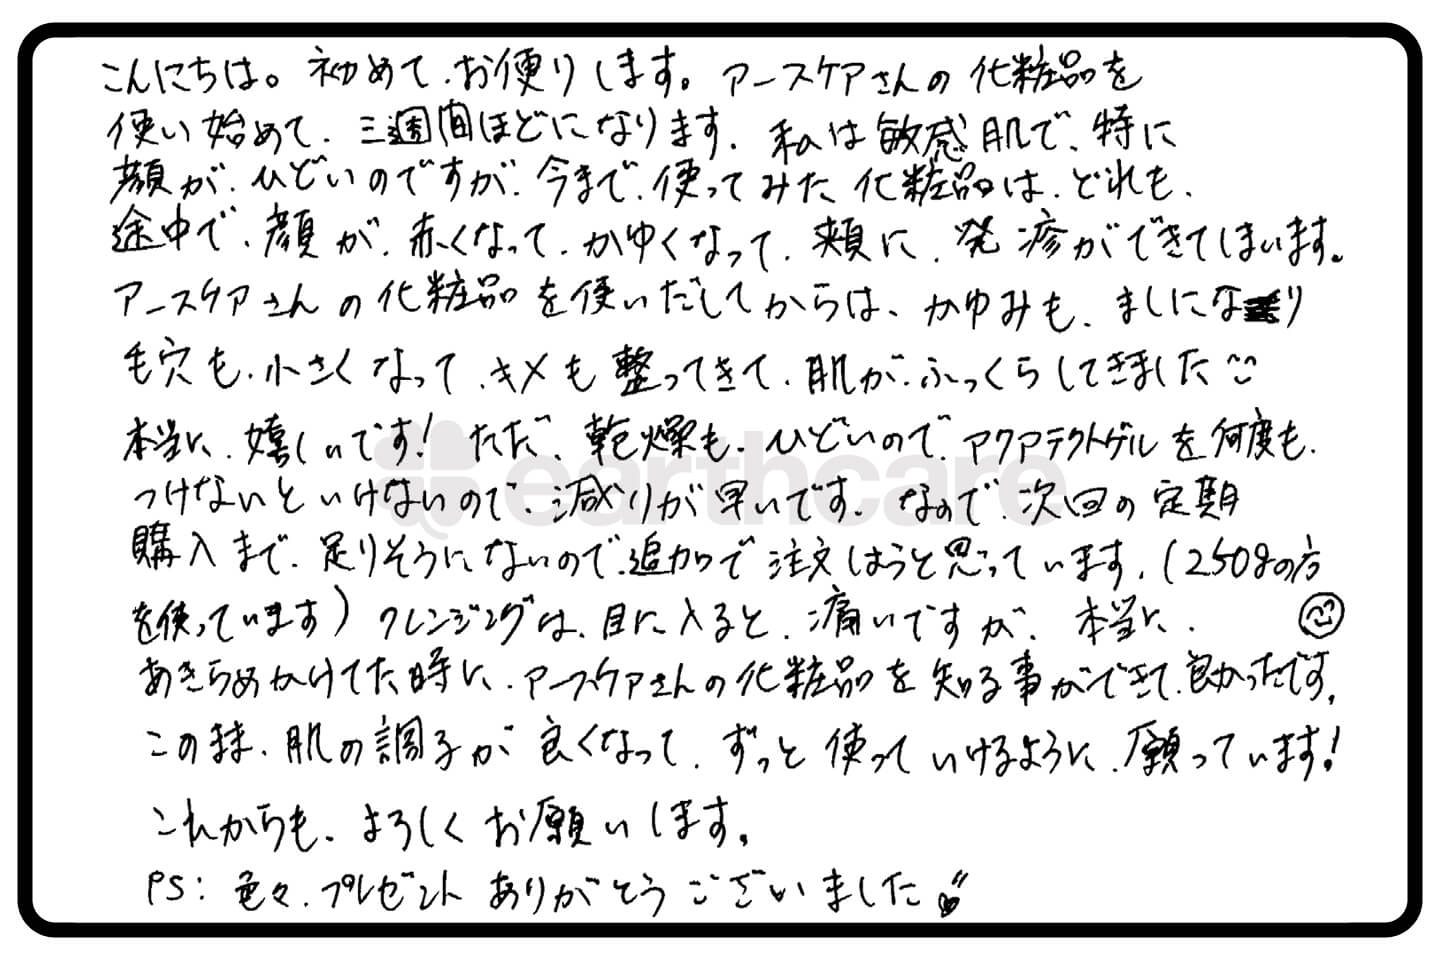 こんにちは。初めて、お便りします。アースケアさんの化粧品を
使い始めて、三週間ほどになります。私は敏感肌で、特に
顔が、ひどいのですが、今まで、使ってみた化粧品は、どれも、
途中で、顔が、赤くなって、かゆくなって、頬に、発疹ができてしまいます。
アースケアさんの化粧品を使いだしてからは、かゆみも、ましになり
毛穴も、小さくなって、キメも整ってきて、肌が、ふっくらしてきました
本当に、嬉しいです!ただ、乾燥も、ひどいので、アクアテクトゲルを何度も、
つけないといけないので、減りが早いです。なので、次回の定期
購入まで、足りそうにないので、追加で注文しようと思っています。(250gの方
を使っています)クレンジングは、目に入ると、痛いですが、本当に、
あきらめかけてた時に、アースケアさんの化粧品を知る事ができて、良かったです。
このまま、肌の調子が良くなって、ずっと使っていけるように、願っています!
これからも、よろしくお願いします。
PS:色々、プレゼントありがとうございました
earthcare